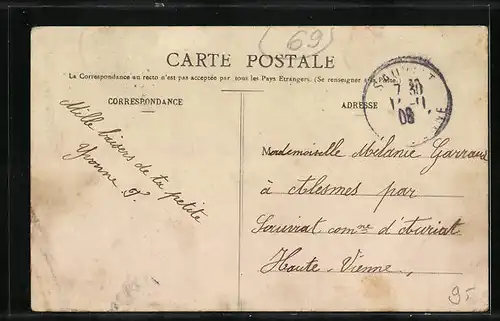 (69)
CARTE POSTALE
La Correspondance au recto n'est pas acceptée par tous les Pays Etrangers. (Se renseigner à la Poste)
CORRESPONDANCE
ADRESSE
7 30
08
Mille baisers de ta petite
Yvonne P.
Mademoiselle Mélanie Garraud
à Alesmes par
Sauviat comne d'Auriat
Haute-Vienne,
9.-